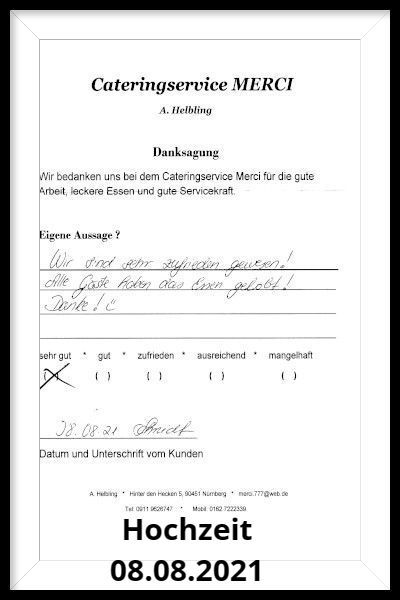 Cateringservice MERCI
A. Helbling
Danksagung
Wir bedanken uns bei dem Cateringservice Merci für die gute
Arbeit, leckere Essen und gute Servicekraft.
Eigene Aussage ?
Wir sind sehr zufrieden gewesen!
Alle Gäste haben das Essen gelobt!
Danke! ü
sehr gut * gut * zufrieden * ausreichend * mangelhaft
(X) ( ) ( ) ( ) ( )
18.08.21 Schmidt
Datum und Unterschrift vom Kunden
A. Helbling * Hinter den Hecken 5, 90451 Nürnberg * merci.777@web.de
Tel: 0911 9626747 * Mobil: 0162 7222339
Hochzeit
08.08.2021